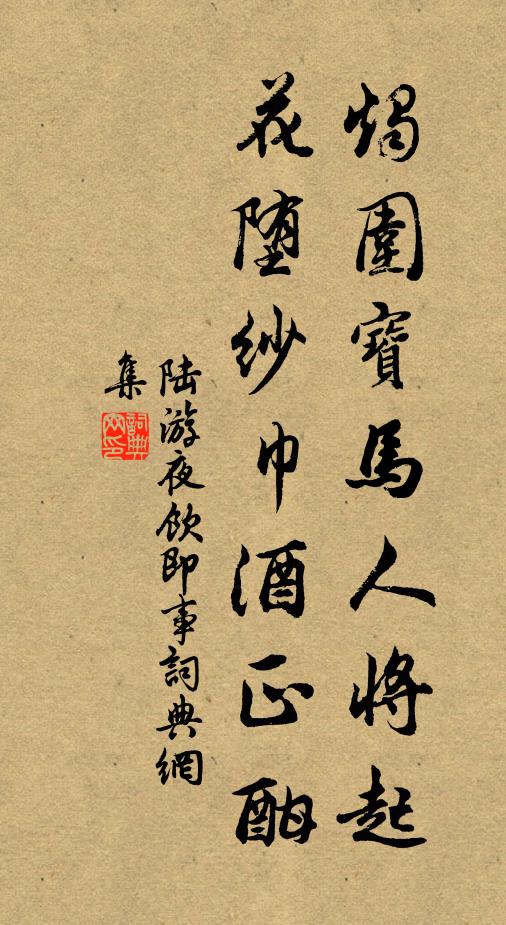 燭圍寶馬人將起
花堕紗巾酒正酣
陆游夜飲即事詞典網
集
詞典
网印